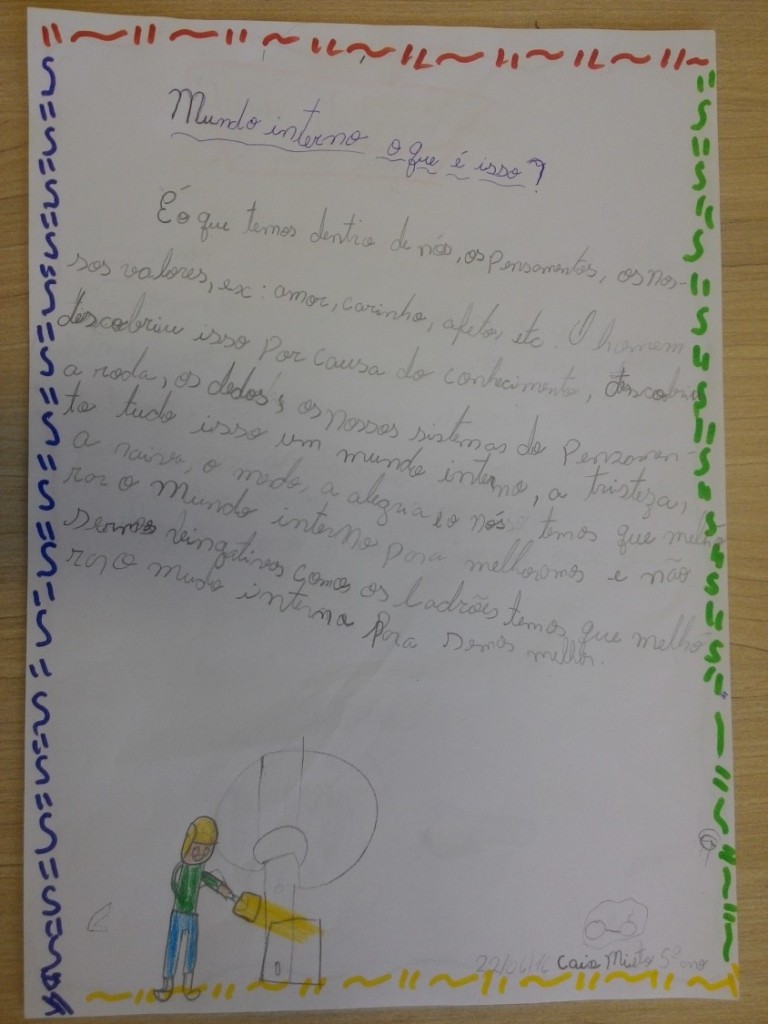 Mundo interno o que é isso?
É o que temos dentro de nós, os pensamentos, os nos-
sos valores, ex: amor, carinho, afeto, etc. O homem
descobriu isso por causa do conhecimento, descobriu
a roda, os dedos, os nossos sistemas do pensamen-
to tudo isso um mundo interno, a tristeza,
a raiva, o medo, a alegria e o nós temos que melho
rar o mundo interno para melhoramos e não
sermos vingativos comos os ladrões temos que melho
rar o mudo interno para semos melhor.
22/06/16 Caio 5º ano